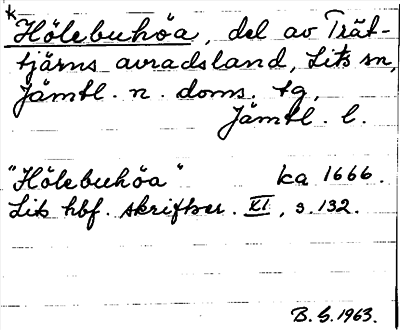 *Hölebuhöa, del av Trät-
tjärns avradsland, Lits sn,
Jämtl. n. doms. tg,
Jämtl. l.
"Hölebuhöa" ka 1666.
Lits hbf. skriftser. XI, s. 132.
B. G. 1963.